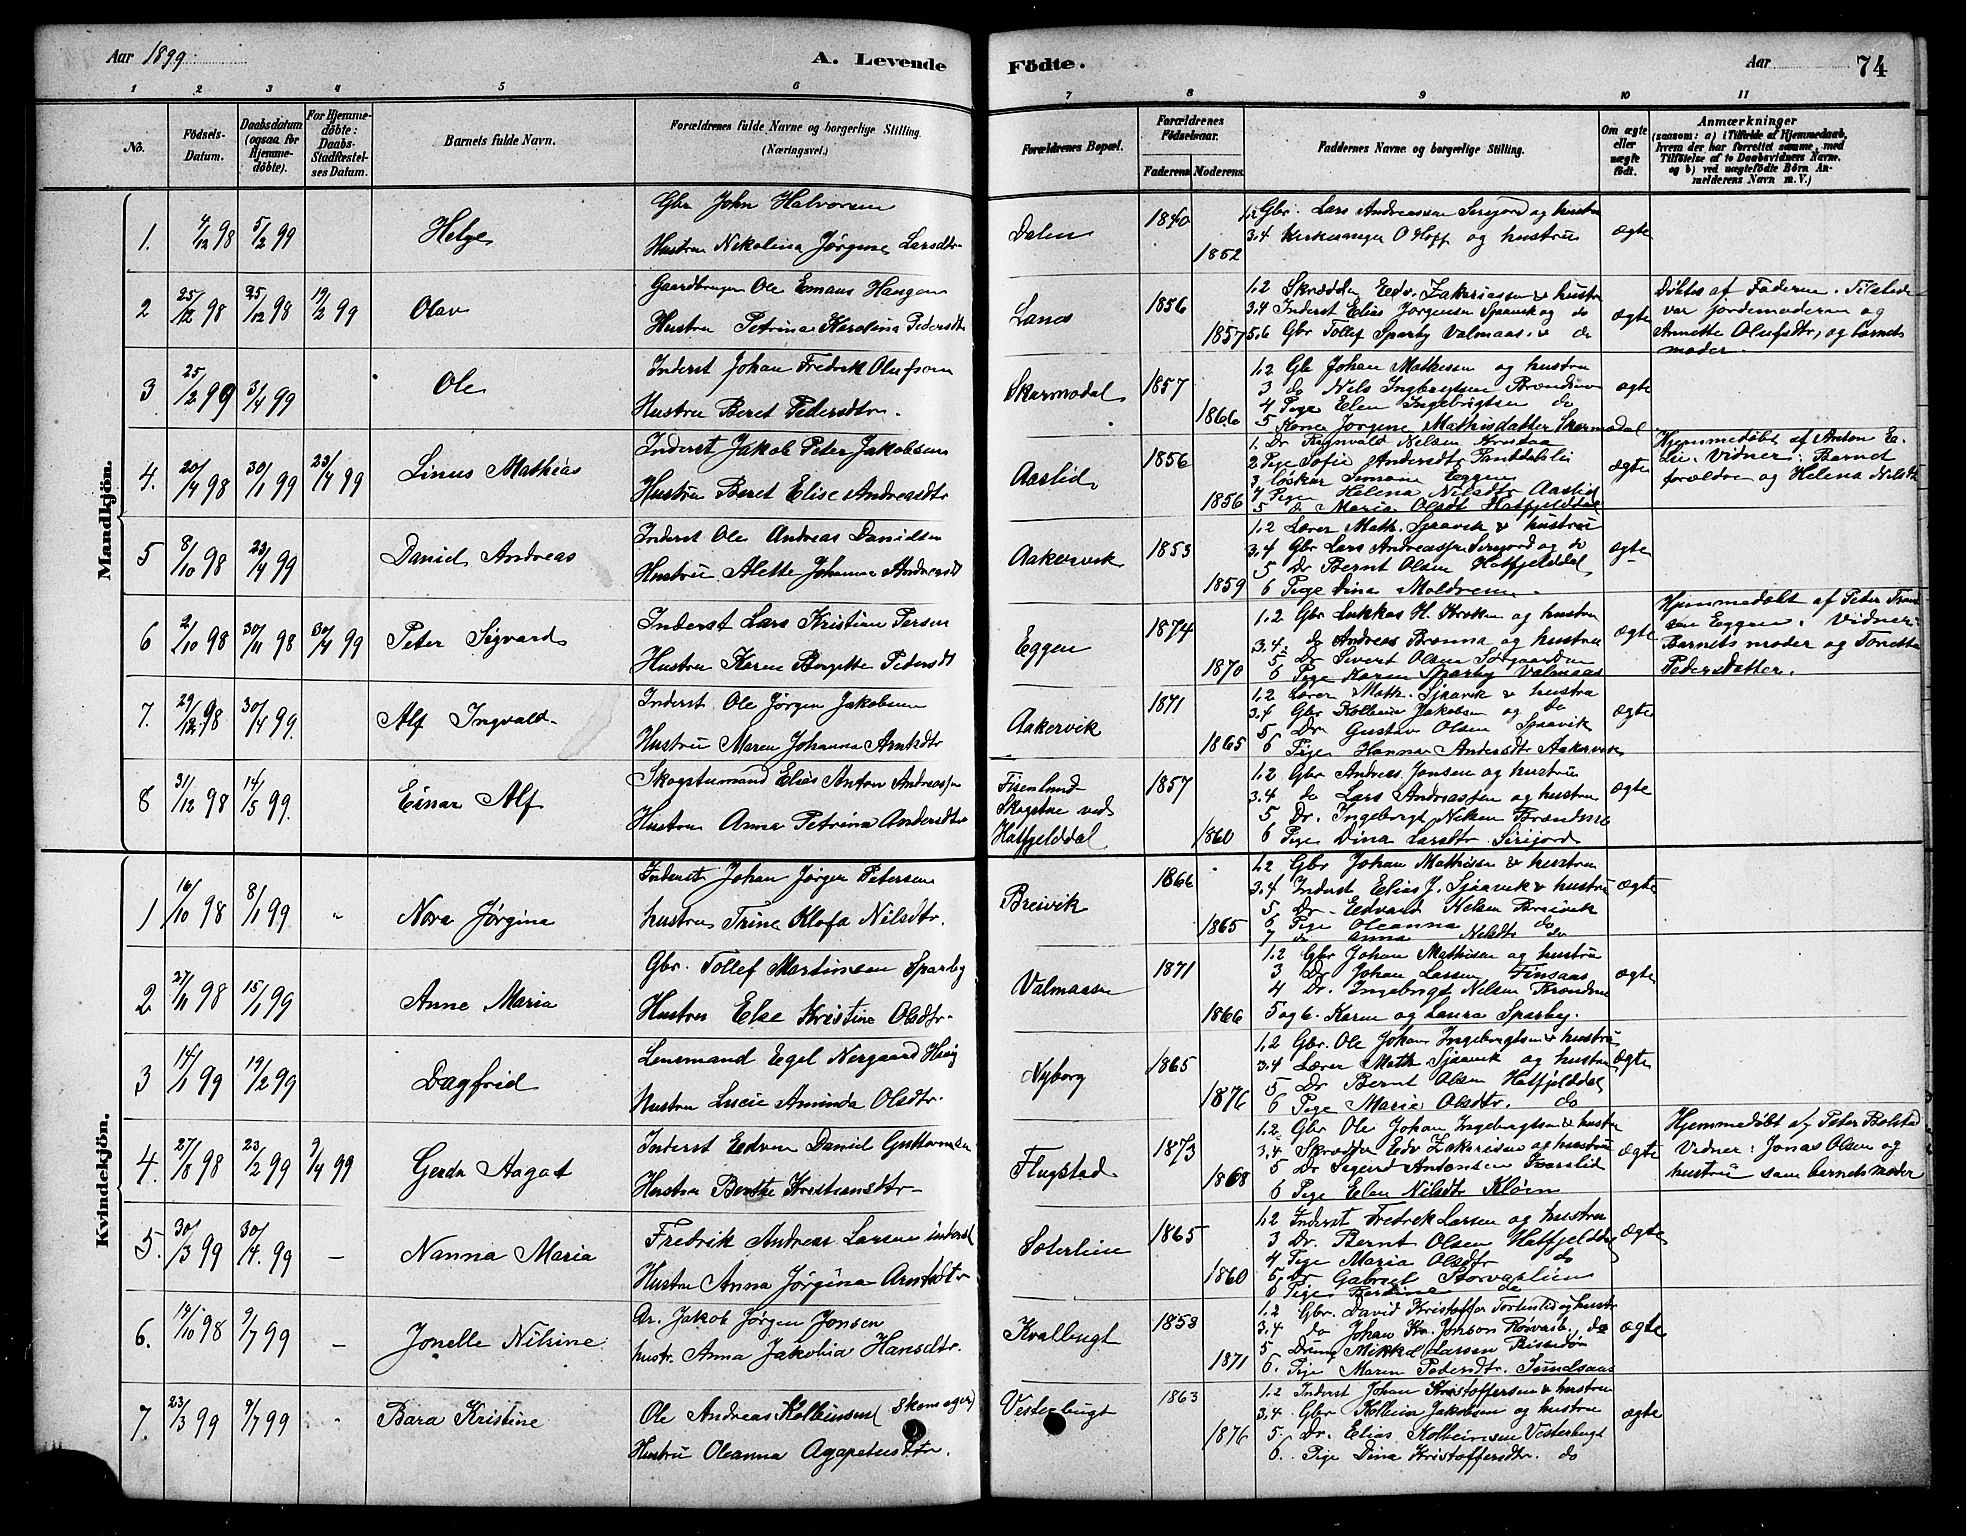 Aar 1899
A. Levende
Födte.
Aar
74
1 2 3 4 5 6 7 8 9 10 11
No.
Födsels-Datum.
Daabsdatum (ogsaa for Hjemme-döbte).
For Hjemme-döbte: Daabs-Stadfæstel-ses Datum.
Barnets fulde Navn.
Forældrenes fulde Navne og borgerlige Stilling.
(Næringsvei.)
Forældrenes Bopæl.
Forældrenes Födselsaar.
Faderens Moderens.
Faddernes Navne og borgerlige Stilling.
Om ægte eller uægte födt.
Anmærkninger
(saasom: a) i Tilfælde af Hjemmedaab, hvem der har forrettet samme, med Tilföielse af to Daabsvidners Navne, og b) ved uægtefödte Börn An-melderens Navn m. V.)
Mandkjön.
1. 4/12 98 5/2 99 Helge
Gbr John Halvorsen
Hustru Nikolina Jørgine Larsdtr
Dalen 1840 1852
1.2 Gbr. Lars Andreassen Sirijord og hustru
3.4 Kirkesanger O Hoff og hustru
ægte
2 25/12 98 25/12 98 19/2 99 Olav
Gaardbruger Ole Emaus Haugen
Hustru Petrina Karolina Pedersdtr
1856 1857
1.2 Skrædder Edv. Zakariassen & hustru
3.4 Inderst Elias Jørgensen Sjaavik og do
5.6 Gbr Tollef Sparby Valmaas & do
ægte
Døbtes af Faderen. Tilstede
var jordemoderen og
Annette Olufsdtr, og barnets
moder.
3 25/2 99 3/4 99 Ole
Inderst Johan Fredrik Olufson
Hustru Beret Pedersdtr.
Skarmodal 1857 1866
1.2 Gbr Johan Mathisen og hustru
3 do Nils Ingebrigtsen Brændmo
4 Pige Elen Ingebrigtsen do
5 Kone Jørgine Mathisdatter Skarmodal
ægte
4. 20/4 98 30/1 99 23/4 99 Linus Mathias
Inderst Jakob Peter Jakobsen
Hustru Beret Elise Andreasdtr
Aaslid 1856 1856
1. Dr Ragnvald Nelsen Krutaa
2 Pige Sofie Andersdtr
3 løskar Simon Eggen
4 Pige Helena Nilsdtr Aaslid
5 do Maria Olsdt Hatfjelddal
ægte
Hjemmedøbt af Anton
Vidner: Barnets
forældre og Helena Nilsdt
5 8/10 98 23/4 99 Daniel Andreas
Inderst Ole Andreas Danielsen
Hustru Alette Johanna Andersdt
Aakervik 1853 1859
1.2 Lærer Math. Sjaavik & hustru
3.4 Gbr Lars Andreassen Sirijord og do
5 Dr Bernt Olsen Hatfjelddal
6 Pige Dina Moldremo.
ægte
6 2/10 98 30/11 98 30/4 99 Peter Sigvard
Inderst Lars Kristian Persen
Hustru Karen Birgitte Pedersdt
Eggen 1874 1870
1.2 Gbr Lukkas H. Kroken og hustru
3.4 do Andreas Brenna og hustru
5 Dr Sivert Olsen Sørgaarden
6 Pige Karen Sparby Valmaas
ægte
Hjemmedøbt af Peter
Eggen. Vidner:
Barnets moder og
Pedersdatter.
7. 29/12 98 30/4 99. Alf Ingvald
Inderst Ole Jørgen Jakobsen
Hustru Maren Johanna Arntsdtr
Aakervik 1871 1865
1.2 Lærer Math. Sjaavik & hustru
3.4 Gbr Kolbein Jakobsen og do
5 Dr Gustav Olsen Sjaavik
6 Pige Hanna Andersdtr Aakervik
ægte
8 31/12 98 14/5 99. Einar Alf
Skogstumand Elias Anton Andreassen
Hustru Anna Petrina Andersdtr
Skogstue ved
Hatfjelddal
1857 1860
1.2 Gbr Andreas Jonsen og hustru
3.4 do Lars Andreassen og hustru
5 Dr. Ingebrigt Nelsen Brændmo
6 Pige Dina Larsdtr Sirijord
ægte
Kvindekjön.
1 16/10 98 8/1 99 - Nora Jørgina
Inderst Johan Jørgen Petersen
hustru Trine Klofa Nilsdtr.
Breivik 1866 1865
1.2 Gbr Johan Mathisen & hustru
3.4 Inderst Elias J. Sjaavik & hustru
5 Dr. Edvard Nelsen Breivik
6 Pige Oleanna do
7 do Anna Nilsdtr do
ægte
2 27/11 98 15/1 99 Anne Maria
Gbr. Tollef Martinsen Sparby
Hustru Else Kristine Olsdtr.
Valmaasen 1871 1866
1.2 Gbr Johan Mathisen og hustru
3 Dr Johan Larsen Finsaas
4 Dr. Ingebrigt Nelsen Brændmo
5 og 6. Karen og Laura Sparby.
ægte
3 14/1 99 19/2 99 Dagfrid
Lensmand Egel Nergaard Heig
Hustru Lucie Aminda Olsdtr.
Nyborg 1865 1876
1.2 Gbr. Ole Johan Ingebrigtsen & hustru
3.4 Lærer Math. Sjaavik og hustru
5 Dr Bernt Olsen Hatfjelddal
6 Pige Marie Olsdtr. do
ægte
4. 27/8 98 23/2 99 3/4 99 Gerda Aagot
Inderst Edvin Daniel Guttormsen
Hustru Berthe Kristiansdtr
Flugstad 1873 1868
1.2 Gbr Ole Johan Ingebrigtsen & hustru
3.4 Skrædder Edv Zakarisen og hustru
5 Dr Sigurd Antonsen Kvarslid
6 Pige Elen Nilsdtr
ægte
Hjemmedøbt af Peter Bolstad
Vidner: Jonas Olsen og
hustru sam barnets moder
5. 30/3 99 30/4 99 - Nanna Maria
Fredrik Andreas Larsen inderst
Hustru Anna Jørgina Arntsdtr
Soterlien 1865 1860
1.2 Inderst Fredrik Larsen og hustru
3 Dr. Bernt Olsen Hatfjelddal
4 Pige Maria Olsdtr do
5. Dr Gabriel Storvaplien
6 Pige do
ægte
6. 14/10 98 9/7 99 - Jonelle Nilsine
Dr. Jakob Jørgen Jonsen
hustr. Anna Jakobia Hansdtr.
Kvalbugt 1853 1871
1.2 Gbr. David Kristoffer og hustr
3.4 do Johan Kr. Jonson Røivasb. do
5 Dreng Mikkel Larsen
6. Pige Maren Pedersdtr.
ægte
7. 23/3 99 9/7 99 - Bara Kristine
Ole Andreas Kolbeinsen (skomager)
Hustru Oleanna Agapetusdtr.
Vesterbugt 1863 1876
1.2 Inderst Johan Kristoffersen & hustru
3.4 Gbr. Kolbein Jakobsen og hustru
5. Dr. Elias Kolbeinsen Vesterbugt
6. Pige Dina Kristoffersdtr. do
ægte